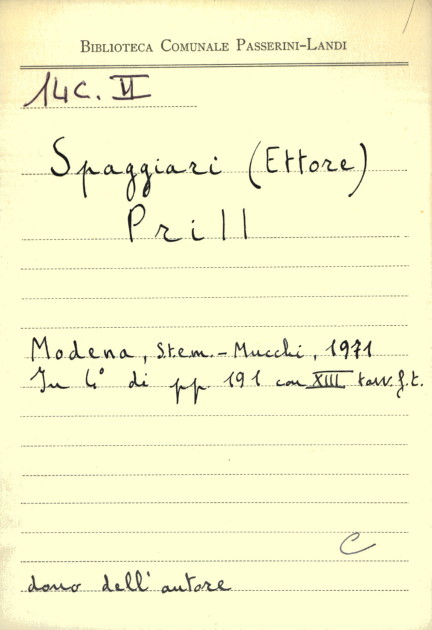 BIBLIOTECA COMUNALE PASSERINI-LANDI
14C. VI
Spaggiari (Ettore)
Prill
Modena, S.t.e.m.-Mucchi, 1971
In 4° di pp. 191 con XIII tavv. f.t.
C
dono dell'autore